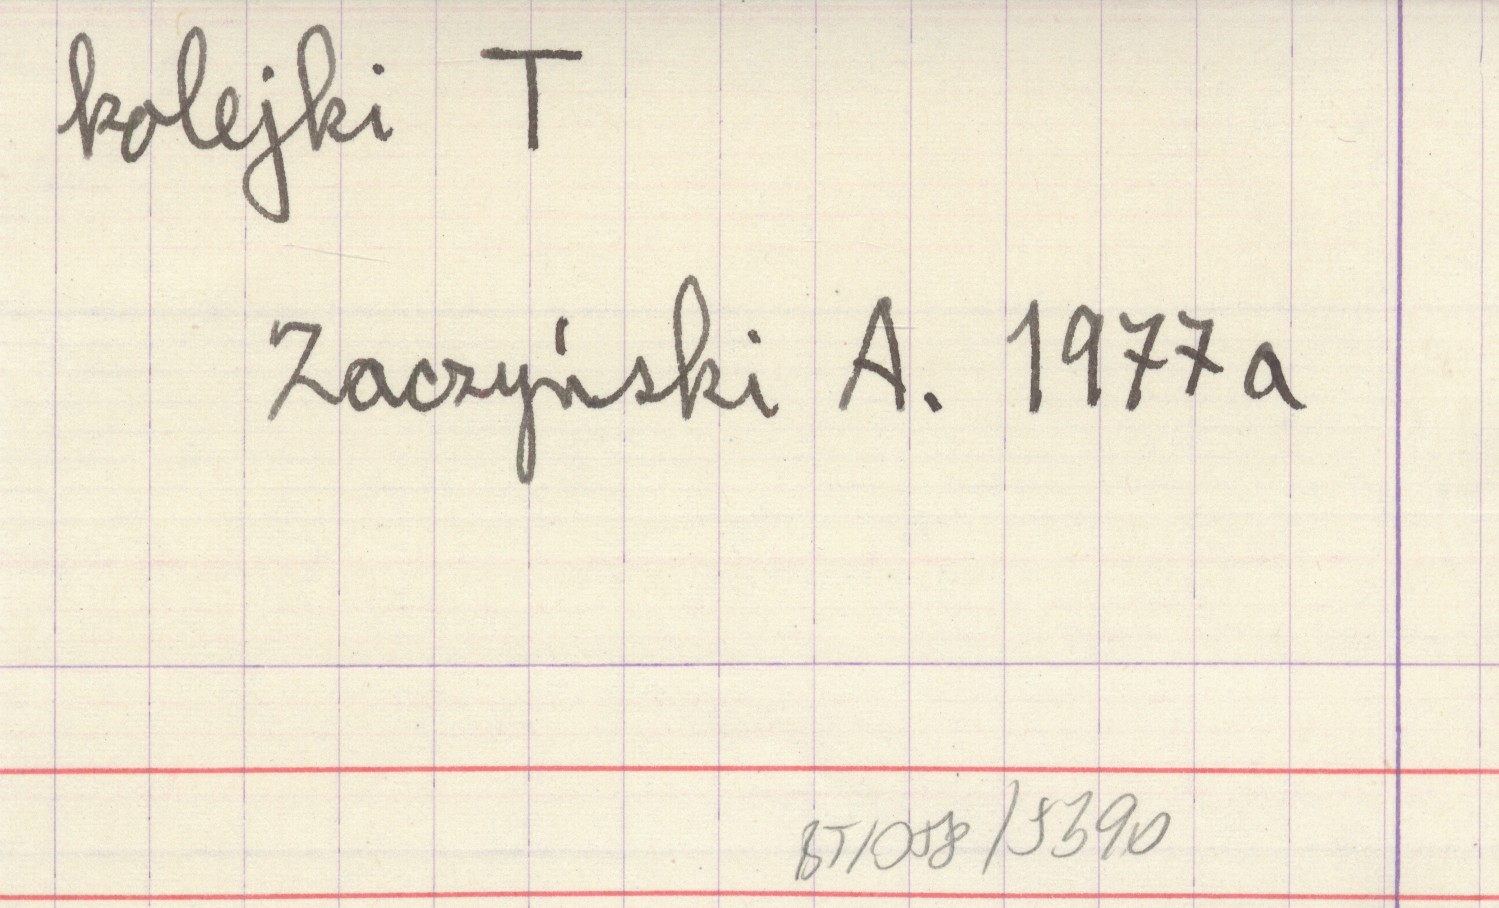 kolejki T
Zaczyński A. 1977a
BT/058/5390